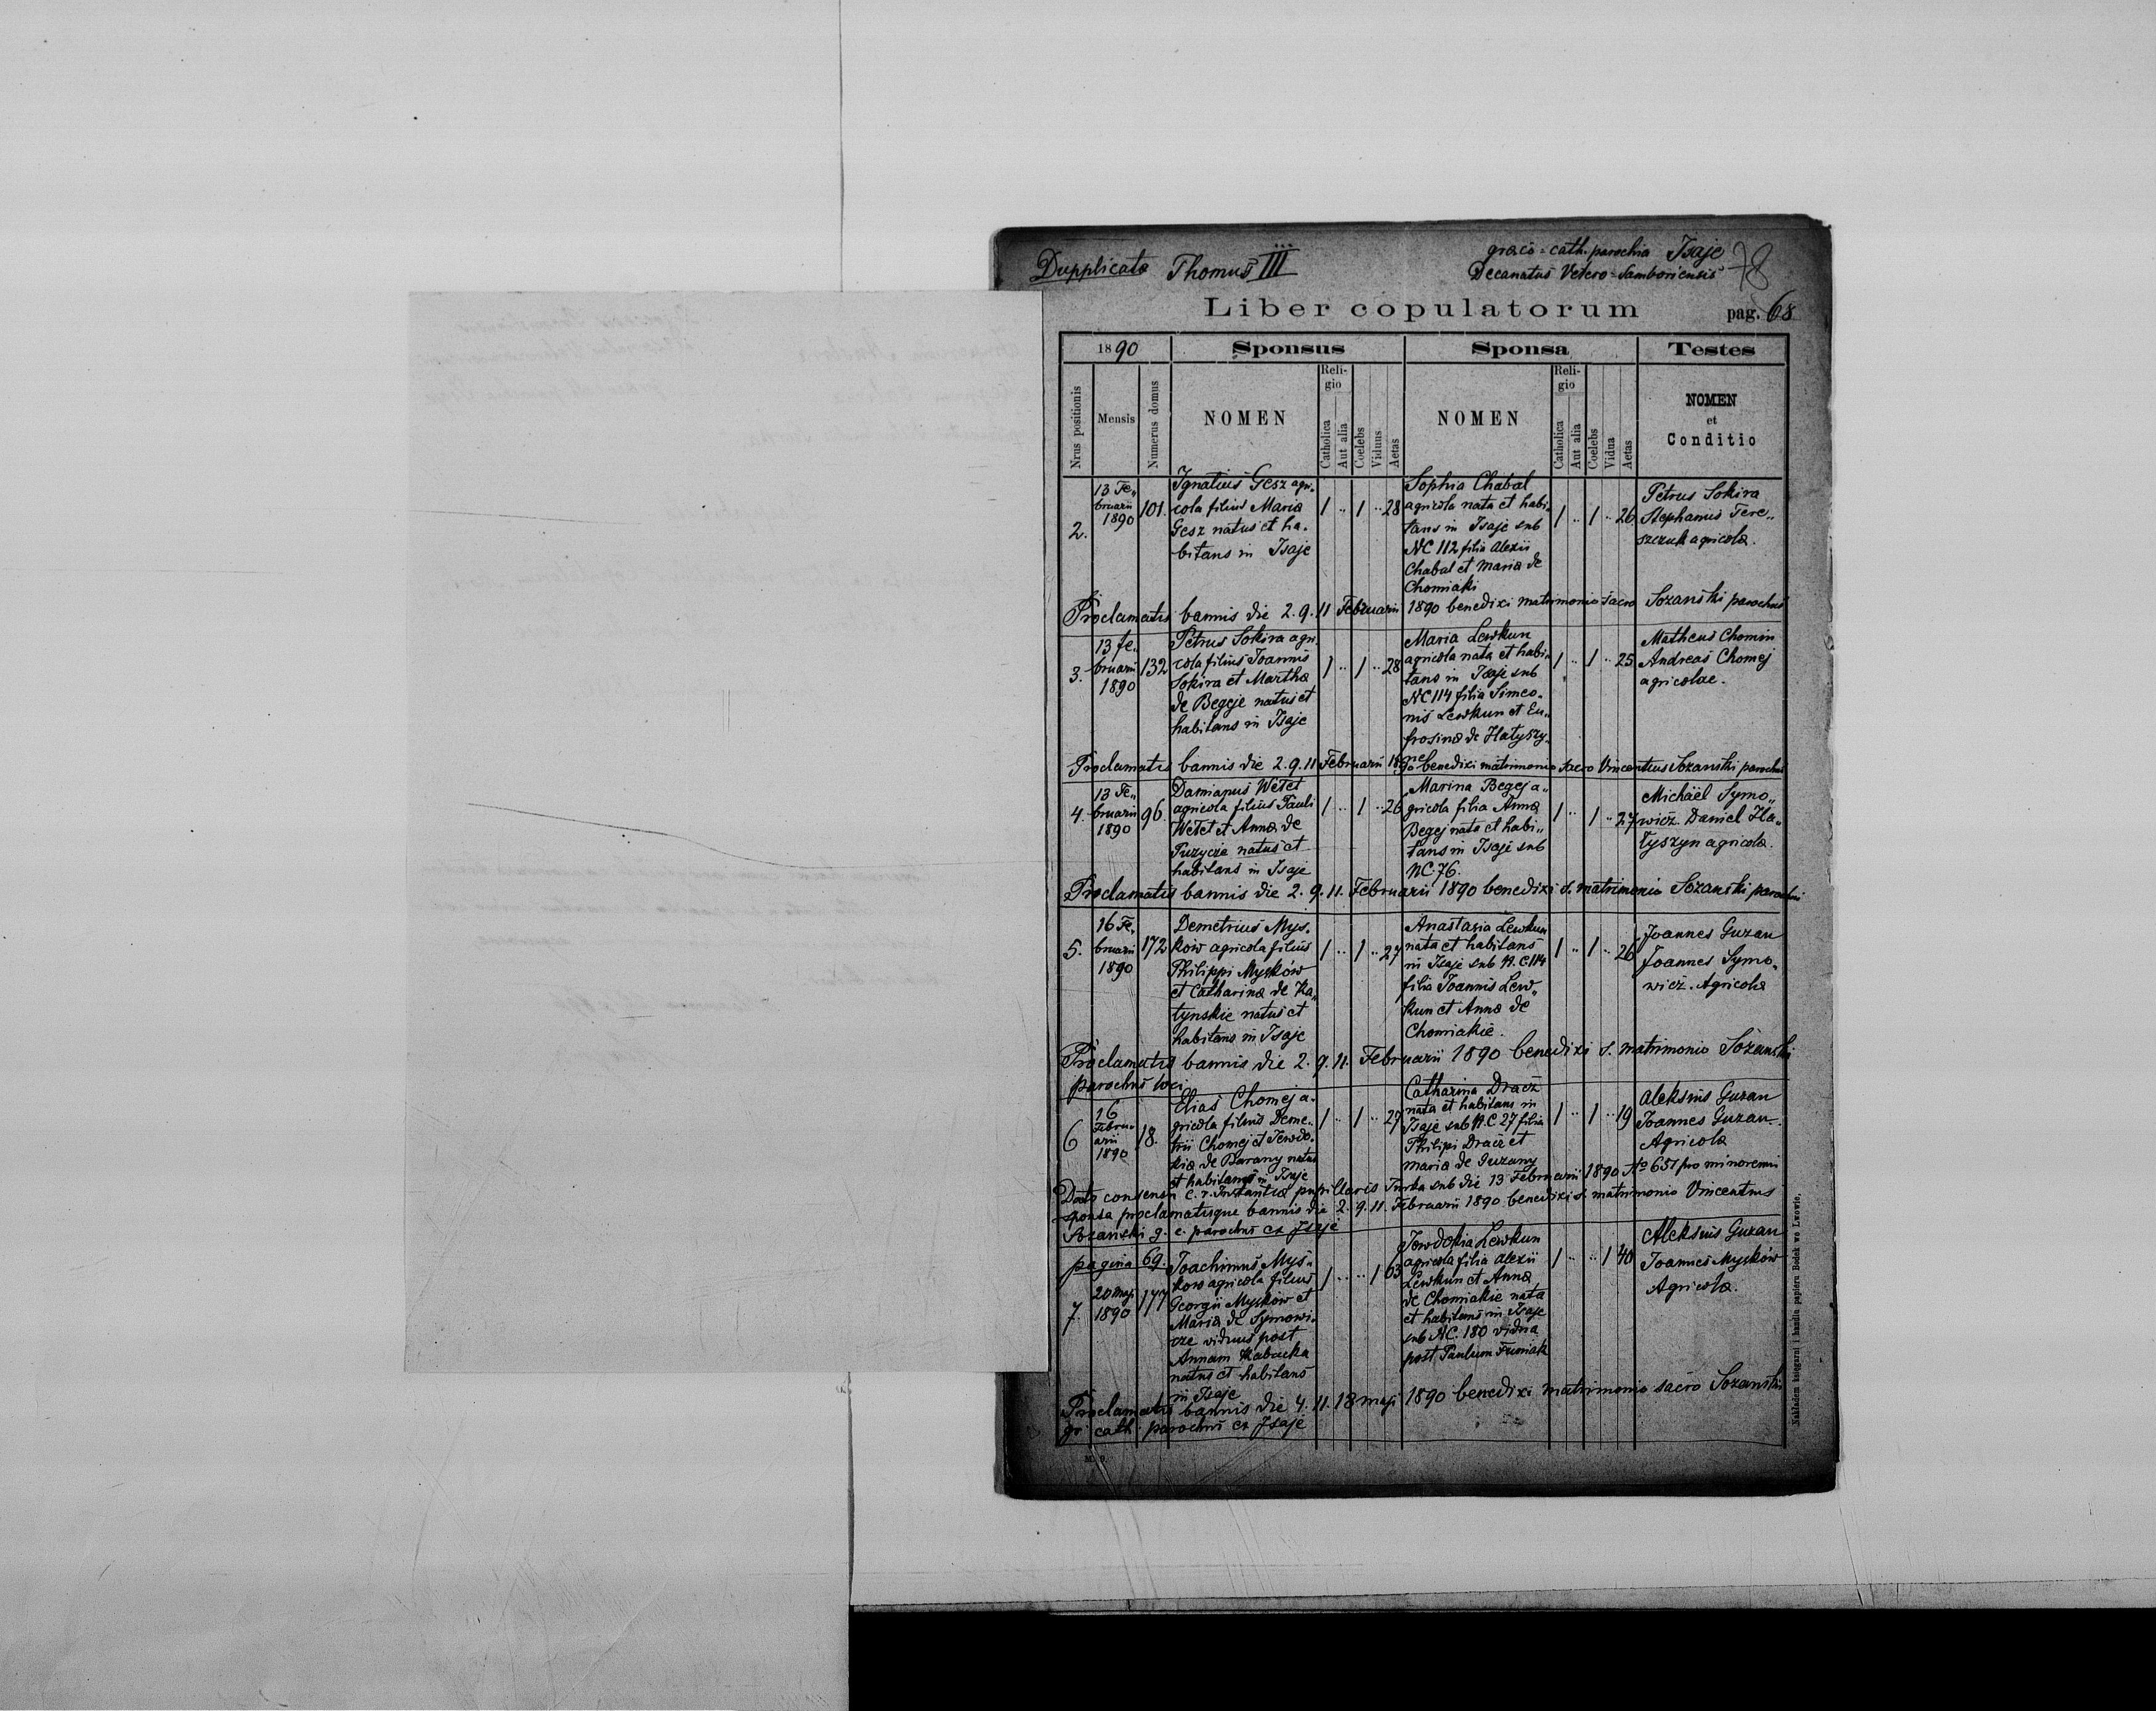 Dupplicata Thomus III
graeco=cath. parochia Isaje 78
Decanatus Vetero=Samboriensis
Liber copulatorum pag. 68
1890 Sponsus Sponsa Testes
Nrus positionis
Mensis
Numerus domus
NOMEN
Religio
Catholica
Aut alia
Coelebs
Viduus
Aetas
NOMEN
Religio
Catholica
Aut alia
Coelebs
Vidua
Aetas
NOMEN
et
Conditio
2.
13 Fe„
bruarii
1890
101.
Ignatius Gesz agri„
cola filius Maria
Gesz natus et ha„
bitans in Isaje
1 .. 1 .. 28
Sophia Chabal
agricola nata et habi„
tans in Isaje sub
NC 112 filia Alexii
Chabal et Maria de
Chomiaki
1 .. 1 .. 26
Petrus Sokira
Stephanus Tere„
szczuk agricola.
Proclamatis bannis die 2. 9. 11 Februarii 1890 benedixi matrimonio sacro Sozański parochus
3.
13 fe„
bruarii
1890
132
Petrus Sokira agri„
cola filius Joannis
Sokira et Martha
de Begeje natus et
habitans in Isaje
1 .. 1 .. 28
Maria Lewkun
agricola nata et habi„
tans in Isaje sub
NC 114 filia Simeo„
nis Lewkun et Eu„
frosina de Hatyszy„
ne
1 .. 1 .. 25
Matheus Chomin
Andreas Chomej
agricolae.
Proclamatis bannis die 2. 9. 11 Februarii 1890 benedixi matrimonio sacro Vincentius Sozanski parochus
4.
13 Fe„
bruarii
1890
96.
Damianus Wetet
agricola filius Pauli
Wetet et Anna de
Puzycze natus et
habitans in Isaje
1 .. 1 .. 26
Marina Begej a„
gricola filia Anna
Begej nata et habi„
tans in Isaje sub
NC. 76.
1 .. 1 .. 27
Michäel Symo„
wicz. Daniel Ha„
tyszyn agricola.
Proclamatis bannis die 2. 9. 11. Februarii 1890 benedixi s. matrimonio Sozanski parochus
5.
16 Fe„
bruarii
1890
172
Demetrius Mys„
ków agricola filius
Philippi Mysków
et Catharina de Ka„
tynskie natus et
habitans in Isaje
1 .. 1 .. 27
Anastasia Lewkun
nata et habitans
in Isaje sub N. C 114
filia Joannis Lew„
kun et Anna de
Chomiakie.
1 .. 1 .. 26
Joannes Guzan
Joannes Symo„
wicz. Agricola
Proclamatis bannis die 2. 9. 11. Februarii 1890 benedixi s. matrimonio Sozanski
parochus loci
6
16
Febru„
arii
1890
18.
Elias Chomej a„
gricola filius Deme„
trii Chomej et Jewdo„
kia de Barany natus
et habitans in Isaje
1 .. 1 .. 27
Catharina Dracz
nata et habitans in
Isaje sub N. C 27 filia
Philipi Dracz et
Maria de Guzany
1 .. 1 .. 19
Aleksius Guzan
Joannes Guzan.
Agricola
Dato consensu c. r. Instantia pupillaris Turka sub die 13 Februarii 1890 No 651 pro minorenni
sponsa proclamatisque bannis die 2. 9. 11. Februarii 1890 benedixi s. matrimonio Vincentius
Sozański g. c. parochus ex Isaje
pagina 69.
7.
20 Maji
1890
177
Joachimus Mys„
kow agricola filius
Georgii Mysków et
Maria de Symowi„
cze viduus post
Annam
natus et habitans
in Isaje
1 .. .. 1 63
Jewdokia Lewkun
agricola filia Alexii
Lewkun et Anna
de Chomiakie nata
et habitans in Isaje
sub NC. 180 vidua
post Paulum
1 .. .. 1 40
Aleksius Guzan
Joannes Mysków
Agricola.
Proclamatis bannis die 4. 11. 18 maji 1890 benedixi matrimonio sacro Sozanski
gr. cath. parochus ex Isaje
M. 9.
Nakładem księgarni i handlu papieru Bodek we Lwowie.